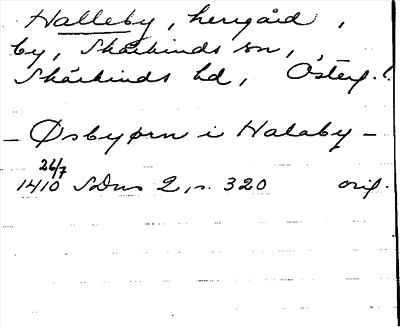 Halleby, herrgård,
by, Skärkinds sn,
Skärkinds hd, Östergl.
– Øsbyørn i Halaby –
26/7
1410 SDns 2, s. 320 orig.